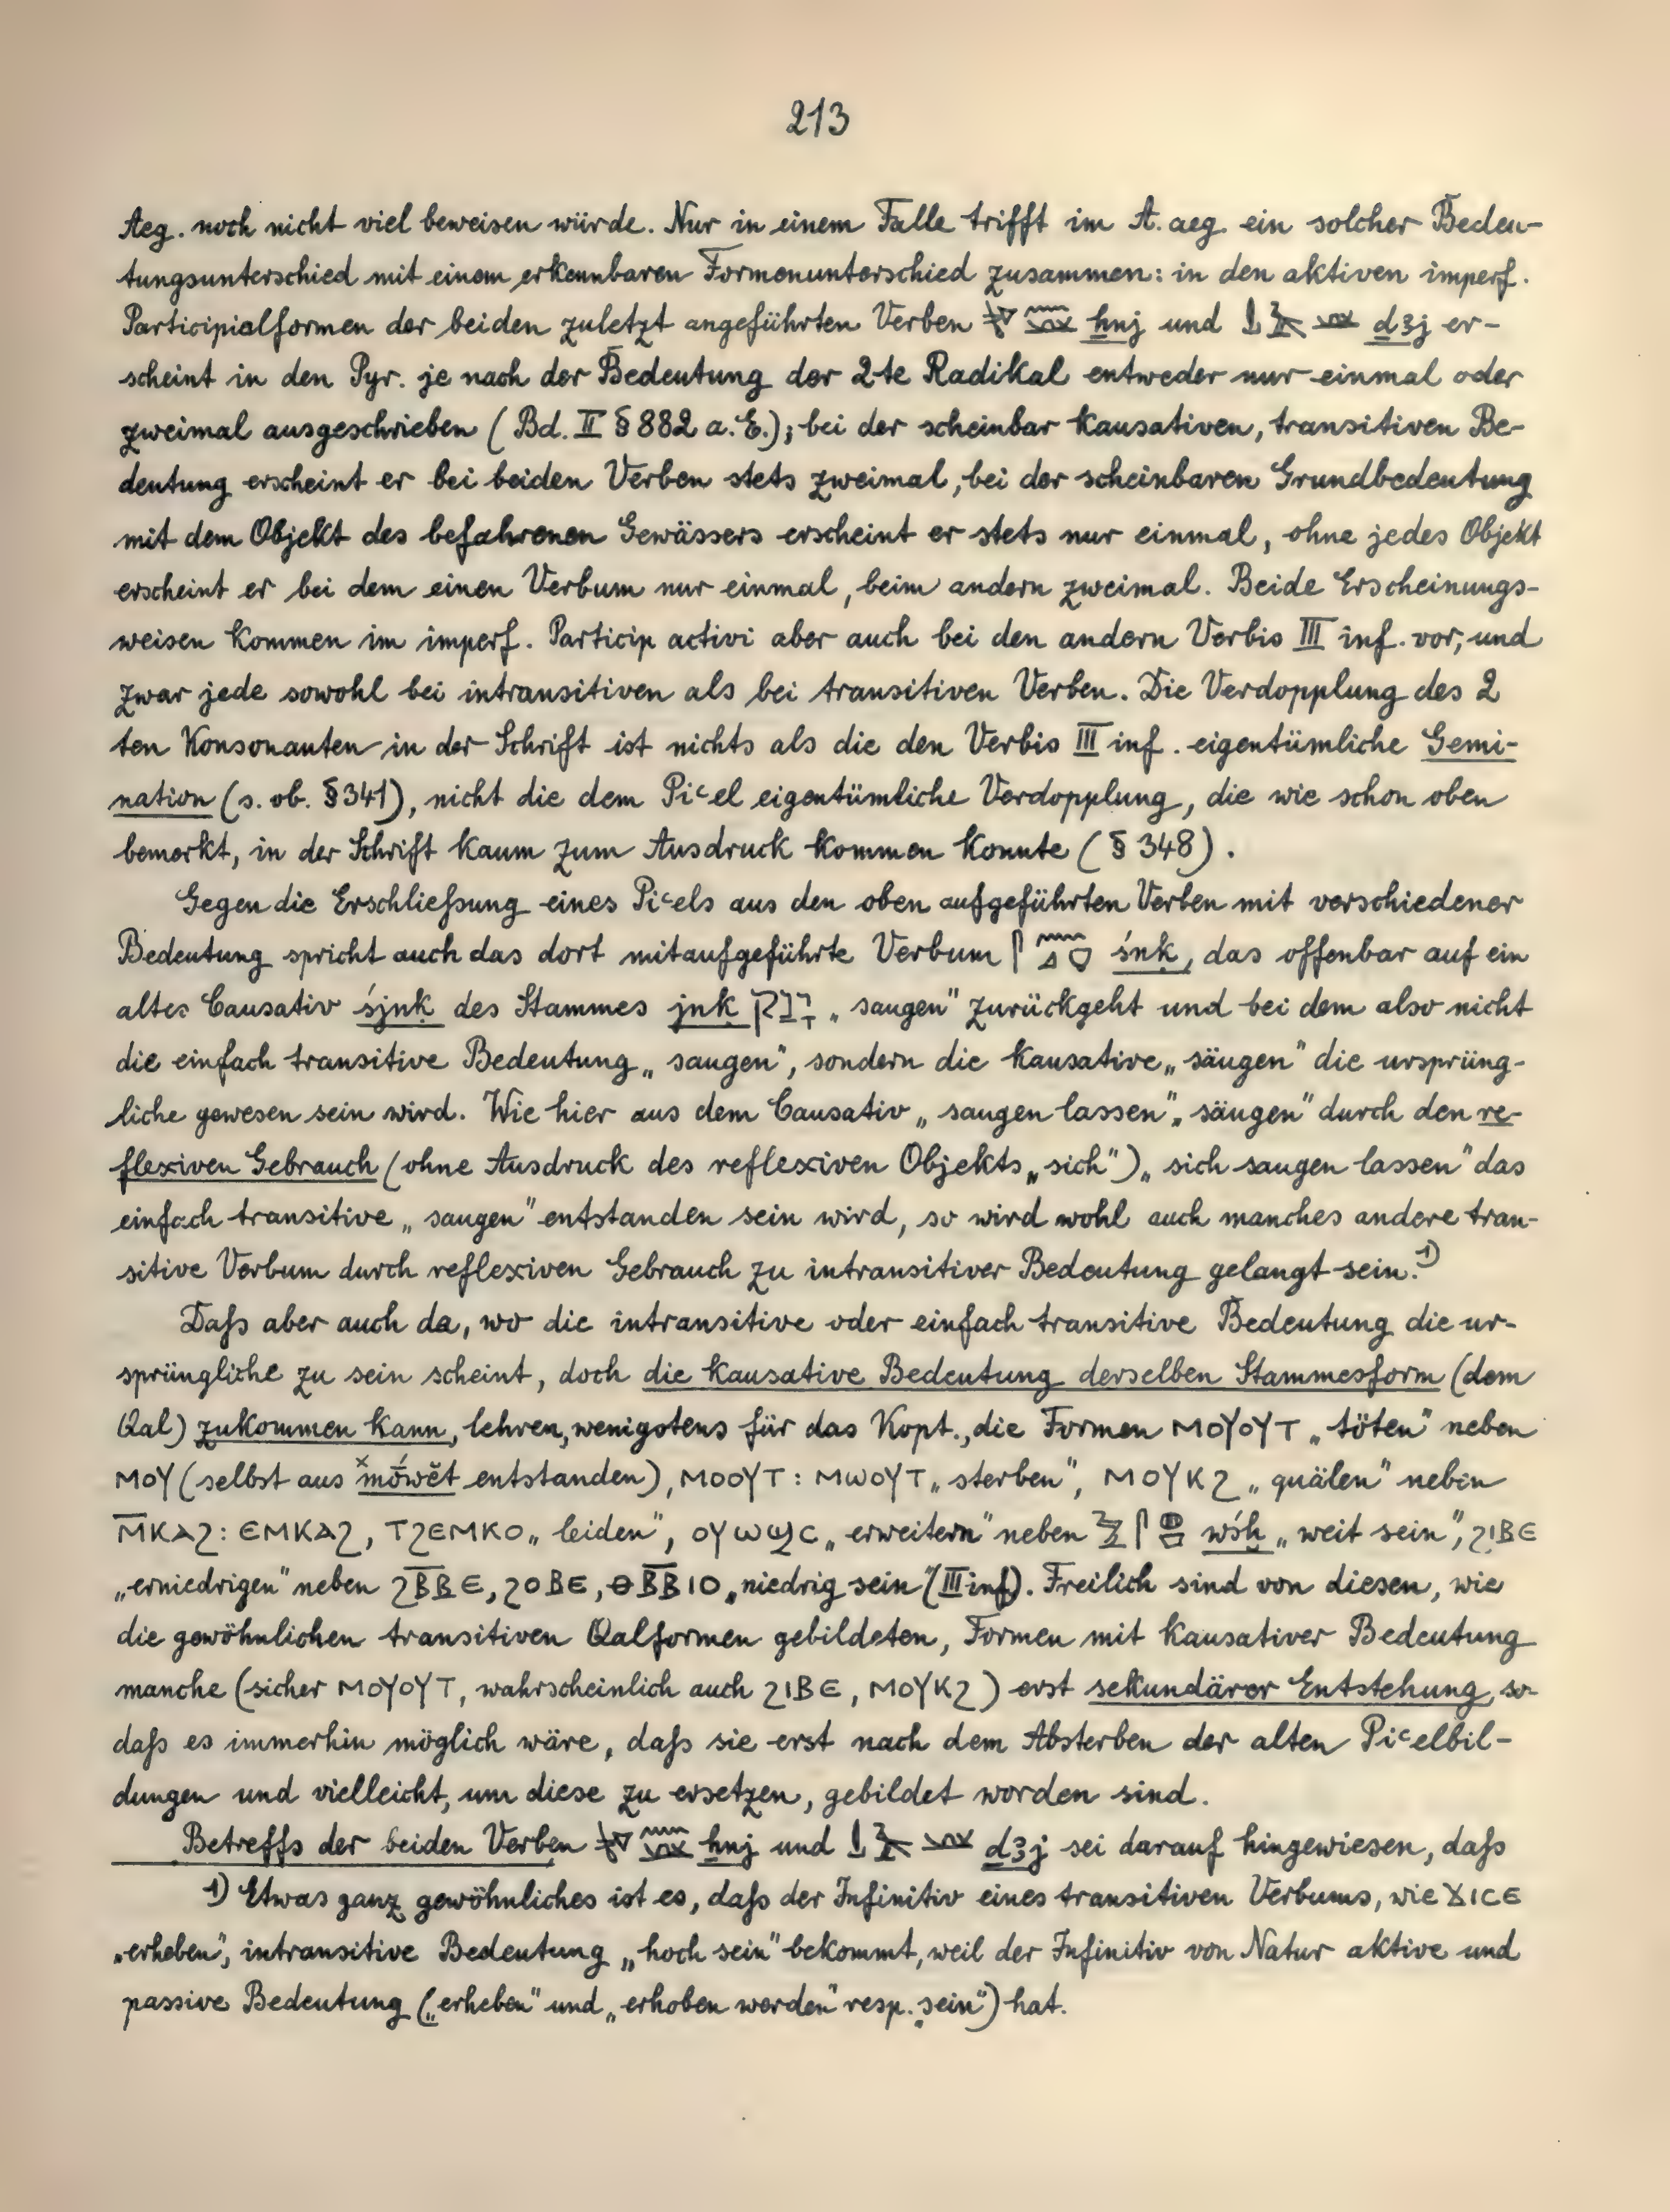 213
Aeg. noch nicht viel beweisen würde. Nur in einem Falle trifft im A. aeg. ein solcher Bedeu-
tungsunterschied mit einem erkennbaren Formenunterschied zusammen: in den aktiven imperf.
Participialformen der beiden zuletzt angeführten Verben ẖnj und ḏꜣj er-
scheint in den Pyr. je nach der Bedeutung der 2te Radikal entweder nur einmal oder
zweimal ausgeschrieben (Bd. II § 882 a. E.); bei der scheinbar kausativen, transitiven Be-
deutung erscheint er bei beiden Verben stets zweimal, bei der scheinbaren Grundbedeutung
mit dem Objekt des befahrenen Gewässers erscheint er stets nur einmal, ohne jedes Objekt
erscheint er bei dem einen Verbum nur einmal, beim andern zweimal. Beide Erscheinungs-
weisen kommen im imperf. Particip activi aber auch bei den andern Verbis III inf. vor, und
zwar jede sowohl bei intransitiven als bei transitiven Verben. Die Verdopplung des 2
ten Konsonanten in der Schrift ist nichts als die den Verbis III inf. eigentümliche Gemi-
nation (s. ob. § 341), nicht die dem Piʿel eigentümliche Verdopplung, die wie schon oben
bemerkt, in der Schrift kaum zum Ausdruck kommen konnte (§ 348).
Gegen die Erschließung eines Piʿels aus den oben aufgeführten Verben mit verschiedener
Bedeutung spricht auch das dort mitaufgeführte Verbum śnḳ, das offenbar auf ein
altes Causativ śjnḳ des Stammes jnḳ ינק „saugen" zurückgeht und bei dem also nicht
die einfach transitive Bedeutung „saugen", sondern die kausative „säugen" die ursprüng-
liche gewesen sein wird. Wie hier aus dem Causativ „saugen lassen", „säugen" durch den re-
flexiven Gebrauch (ohne Ausdruck des reflexiven Objekts „sich") „sich saugen lassen" das
einfach transitive „saugen" entstanden sein wird, so wird wohl auch manches andere tran-
sitive Verbum durch reflexiven Gebrauch zu intransitiver Bedeutung gelangt sein.¹⁾
Daß aber auch da, wo die intransitive oder einfach transitive Bedeutung die ur-
sprüngliche zu sein scheint, doch die kausative Bedeutung derselben Stammesform (dem
Qal) zukommen kann, lehren, wenigstens für das Kopt., die Formen ⲙⲟⲩⲟⲩⲧ „töten" neben
ⲙⲟⲩ (selbst aus ˣmṓwĕt entstanden), ⲙⲟⲟⲩⲧ : ⲙⲱⲟⲩⲧ „sterben", ⲙⲟⲩⲕϩ „quälen" neben
ⲙ̅ⲕⲁϩ : ⲉⲙⲕⲁϩ, ⲧϩⲉⲙⲕⲟ „leiden", ⲟⲩⲱϣⲥ „erweitern" neben wśḫ „weit sein", ϩⲓⲃⲉ
„erniedrigen" neben ϩⲃ̅ⲃ̅ⲉ, ϩⲟⲃⲉ, ⲑⲃ̅ⲃ̅ⲓⲟ „niedrig sein" (III inf). Freilich sind von diesen, wie
die gewöhnlichen transitiven Qalformen gebildeten, Formen mit kausativer Bedeutung
manche (sicher ⲙⲟⲩⲟⲩⲧ, wahrscheinlich auch ϩⲓⲃⲉ, ⲙⲟⲩⲕϩ) erst sekundärer Entstehung, so-
daß es immerhin möglich wäre, daß sie erst nach dem Absterben der alten Piʿelbil-
dungen und vielleicht, um diese zu ersetzen, gebildet worden sind.
Betreffs der beiden Verben ẖnj und ḏꜣj sei darauf hingewiesen, daß
1) Etwas ganz gewöhnliches ist es, daß der Infinitiv eines transitiven Verbums, wie ϫⲓⲥⲉ
„erheben", intransitive Bedeutung „hoch sein" bekommt, weil der Infinitiv von Natur aktive und
passive Bedeutung („erheben" und „erhoben werden" resp. „sein") hat.